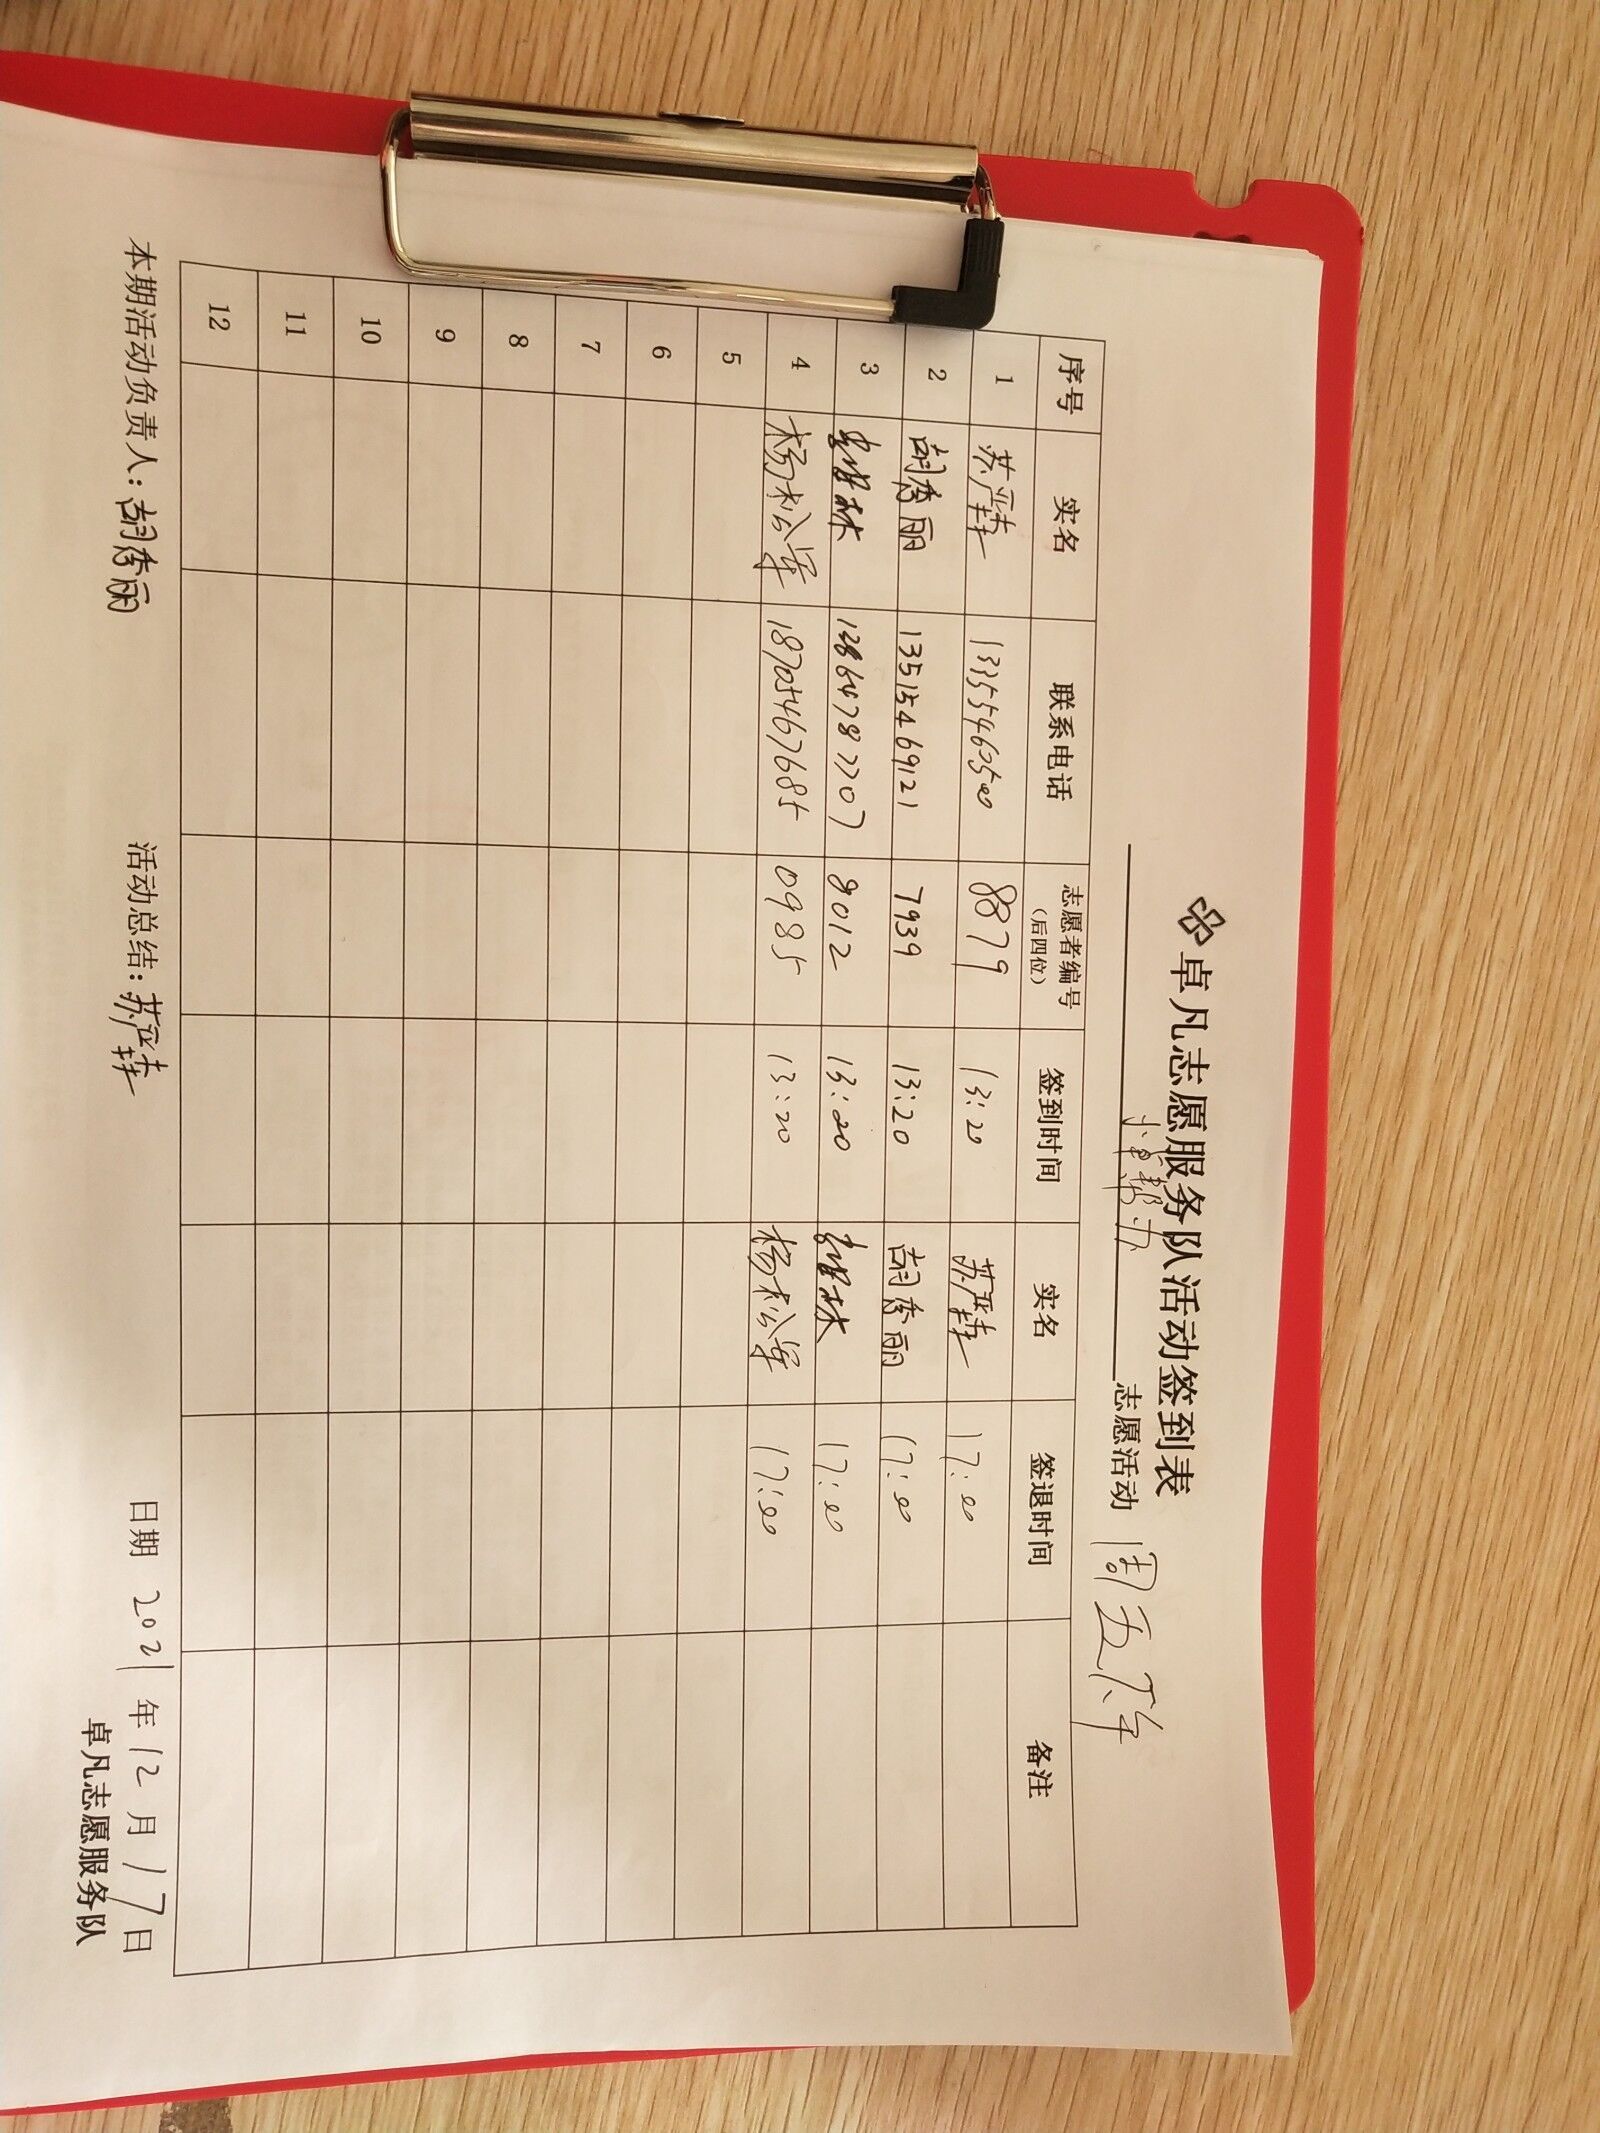 卓凡志愿服务队活动签到表
志愿活动 周五下午
序号 实名 联系电话 志愿者编号(后四位) 签到时间 实名 签退时间 备注
1 8879 13:20 17:00
2 胡秀丽 13515469121 7939 13:20 胡秀丽 17:00
3 9012 13:20 17:00
4 杨松军 18705467685 0985 13:20 杨松军 17:00
5
6
7
8
9
10
11
12
本期活动负责人: 胡秀丽 活动总结: 日期 2021 年 12 月 17 日
卓凡志愿服务队